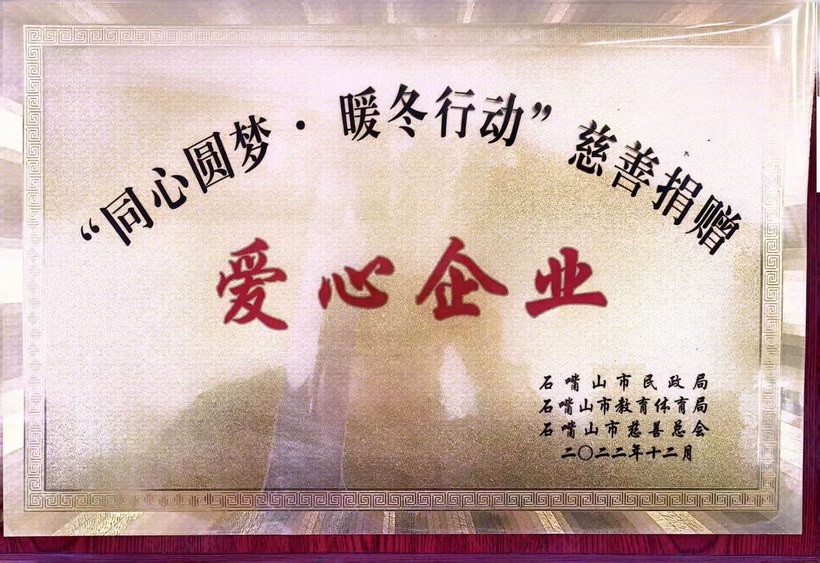 “同心圆梦·暖冬行动”慈善捐赠
爱心企业
石嘴山市民政局
石嘴山市教育体育局
石嘴山市慈善总会
二〇二二年十二月